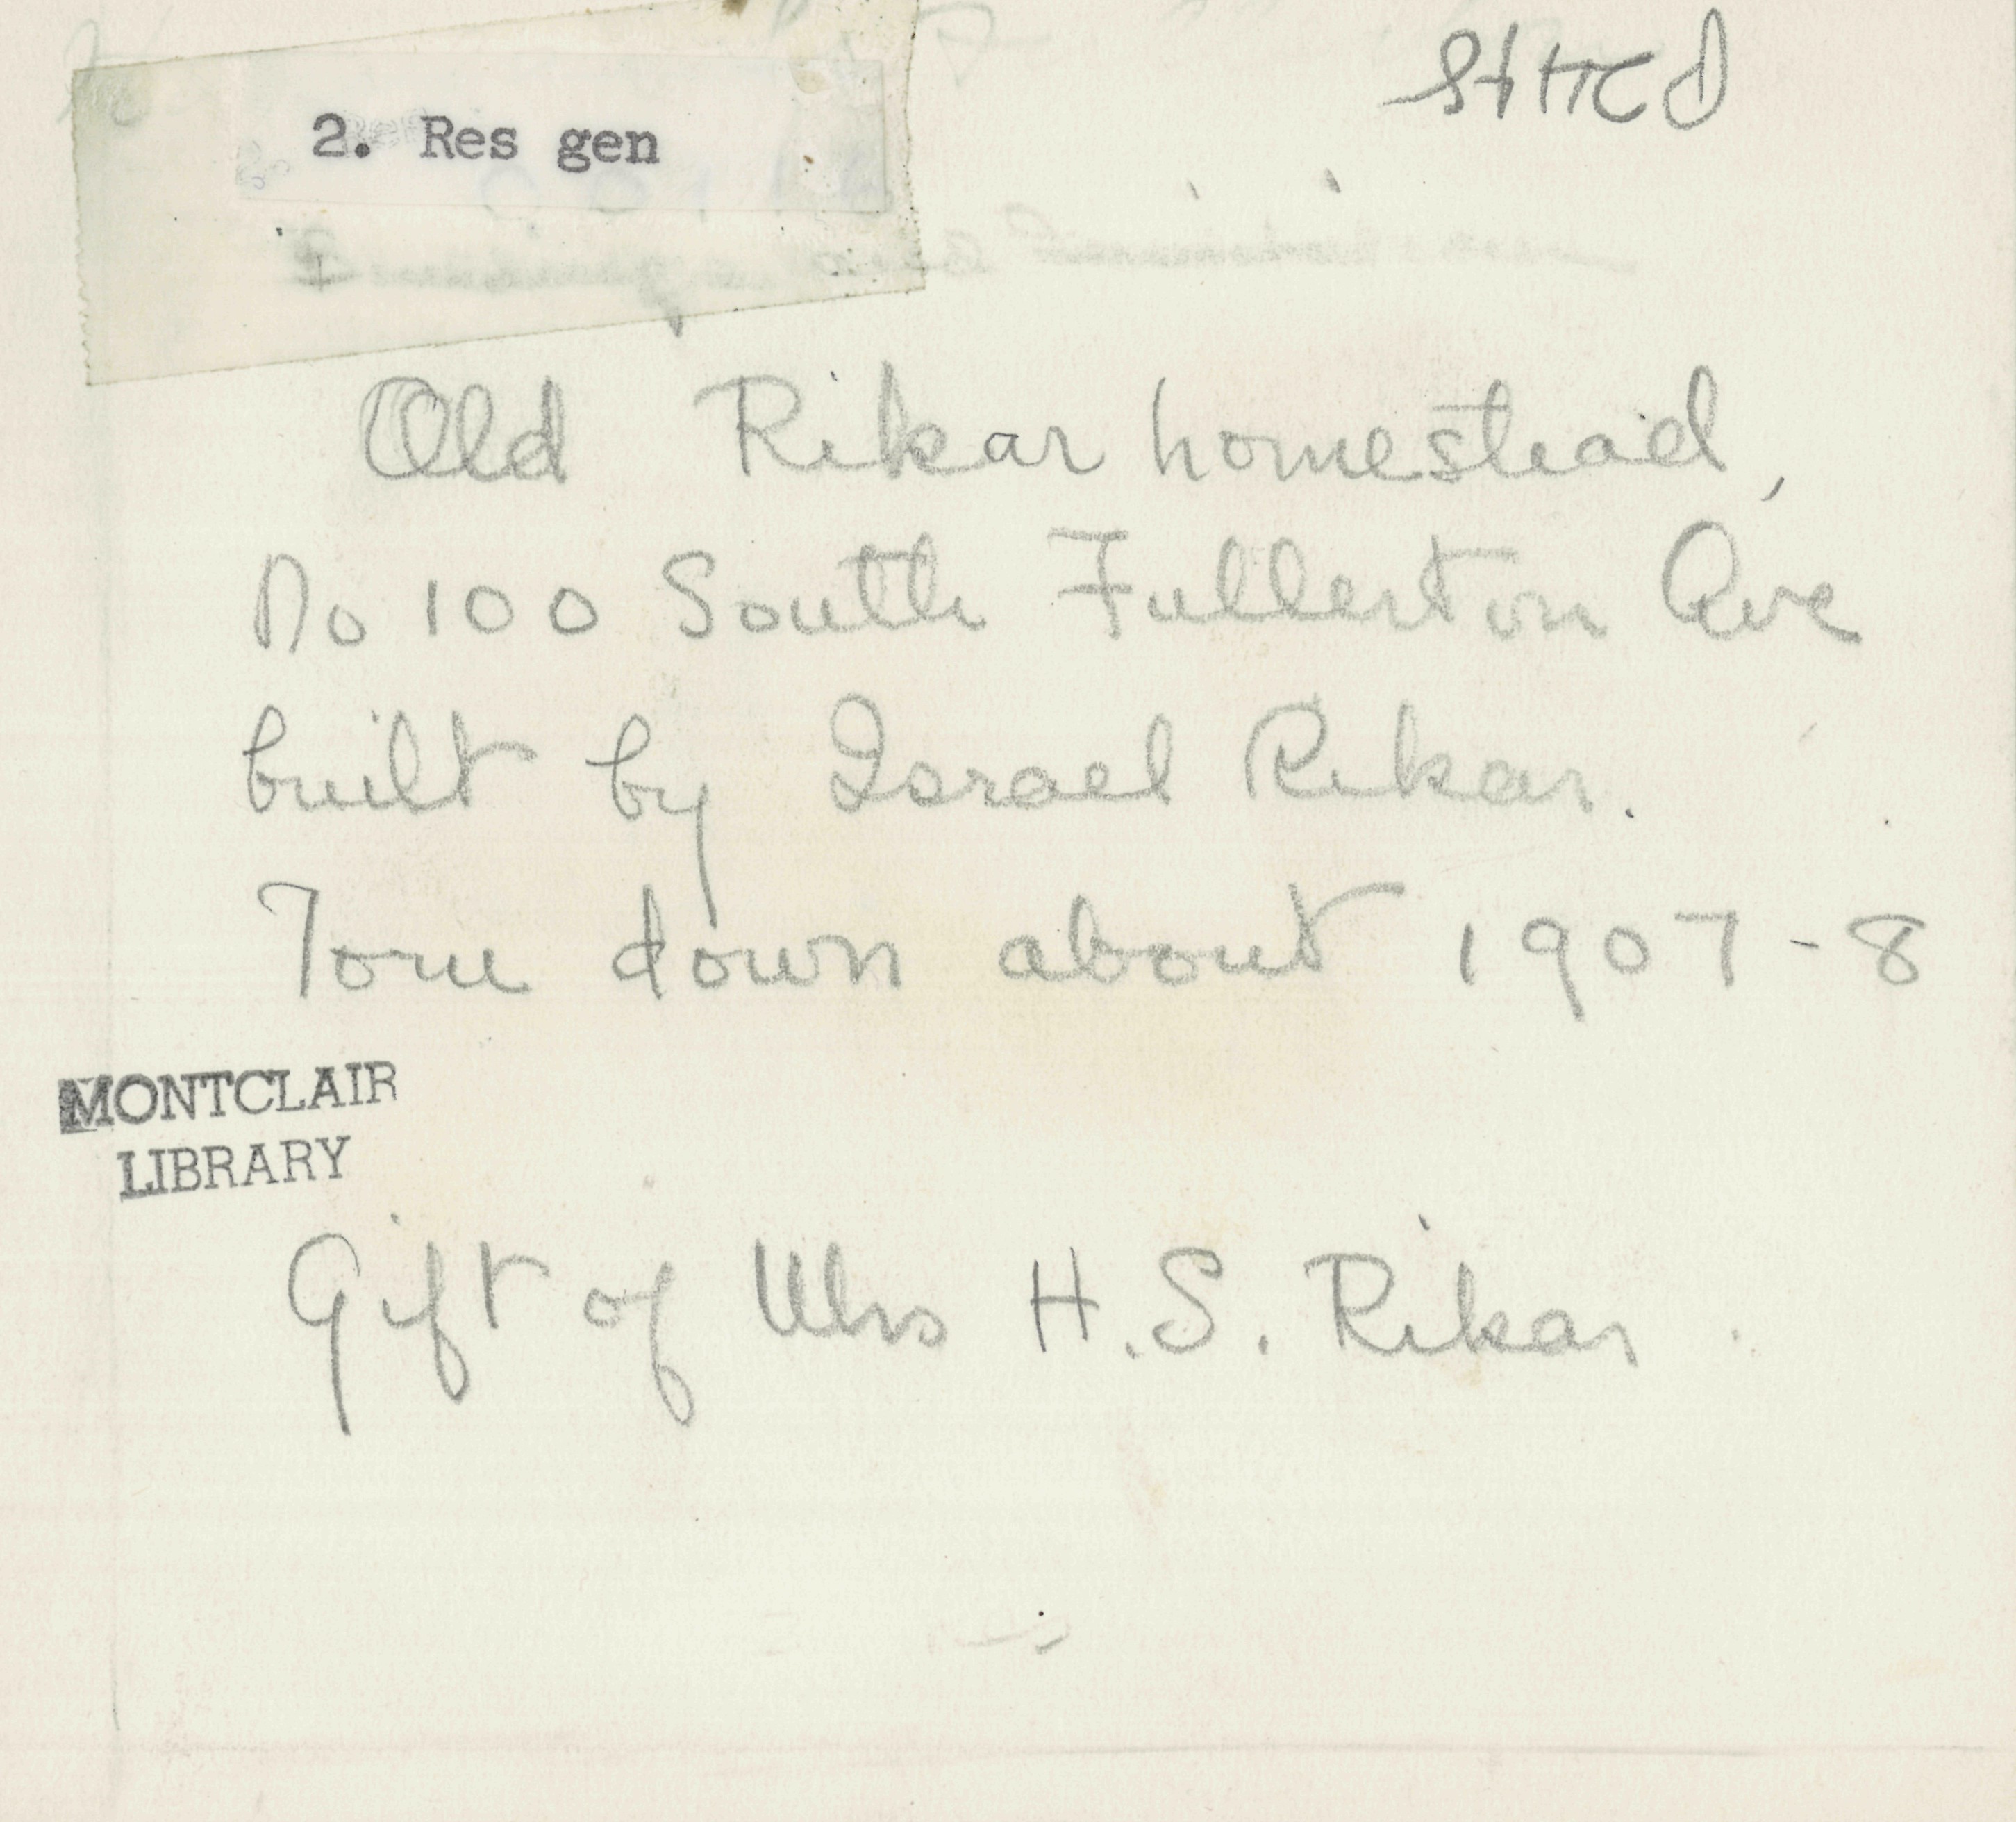 2. Res gen
Old Rikar homestead,
No 100 South Fullerton Ave
built by Israel Rikar.
Torn down about 1907-8
MONTCLAIR
LIBRARY
Gift of Mrs H.S. Rikar.